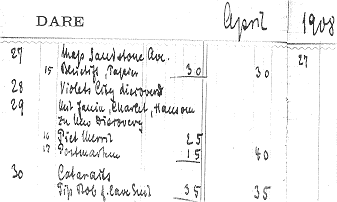 DARE April 1908
27 Map Sandstone Ave. 27
15 30 30
28 Violets City discovered
29 Mit Janin, Charlet, Hanson
zu New Discovery
16 25
17 Postmarken 15 40
30 Cataracts
Tip Bob f. Cave Suit 35 35